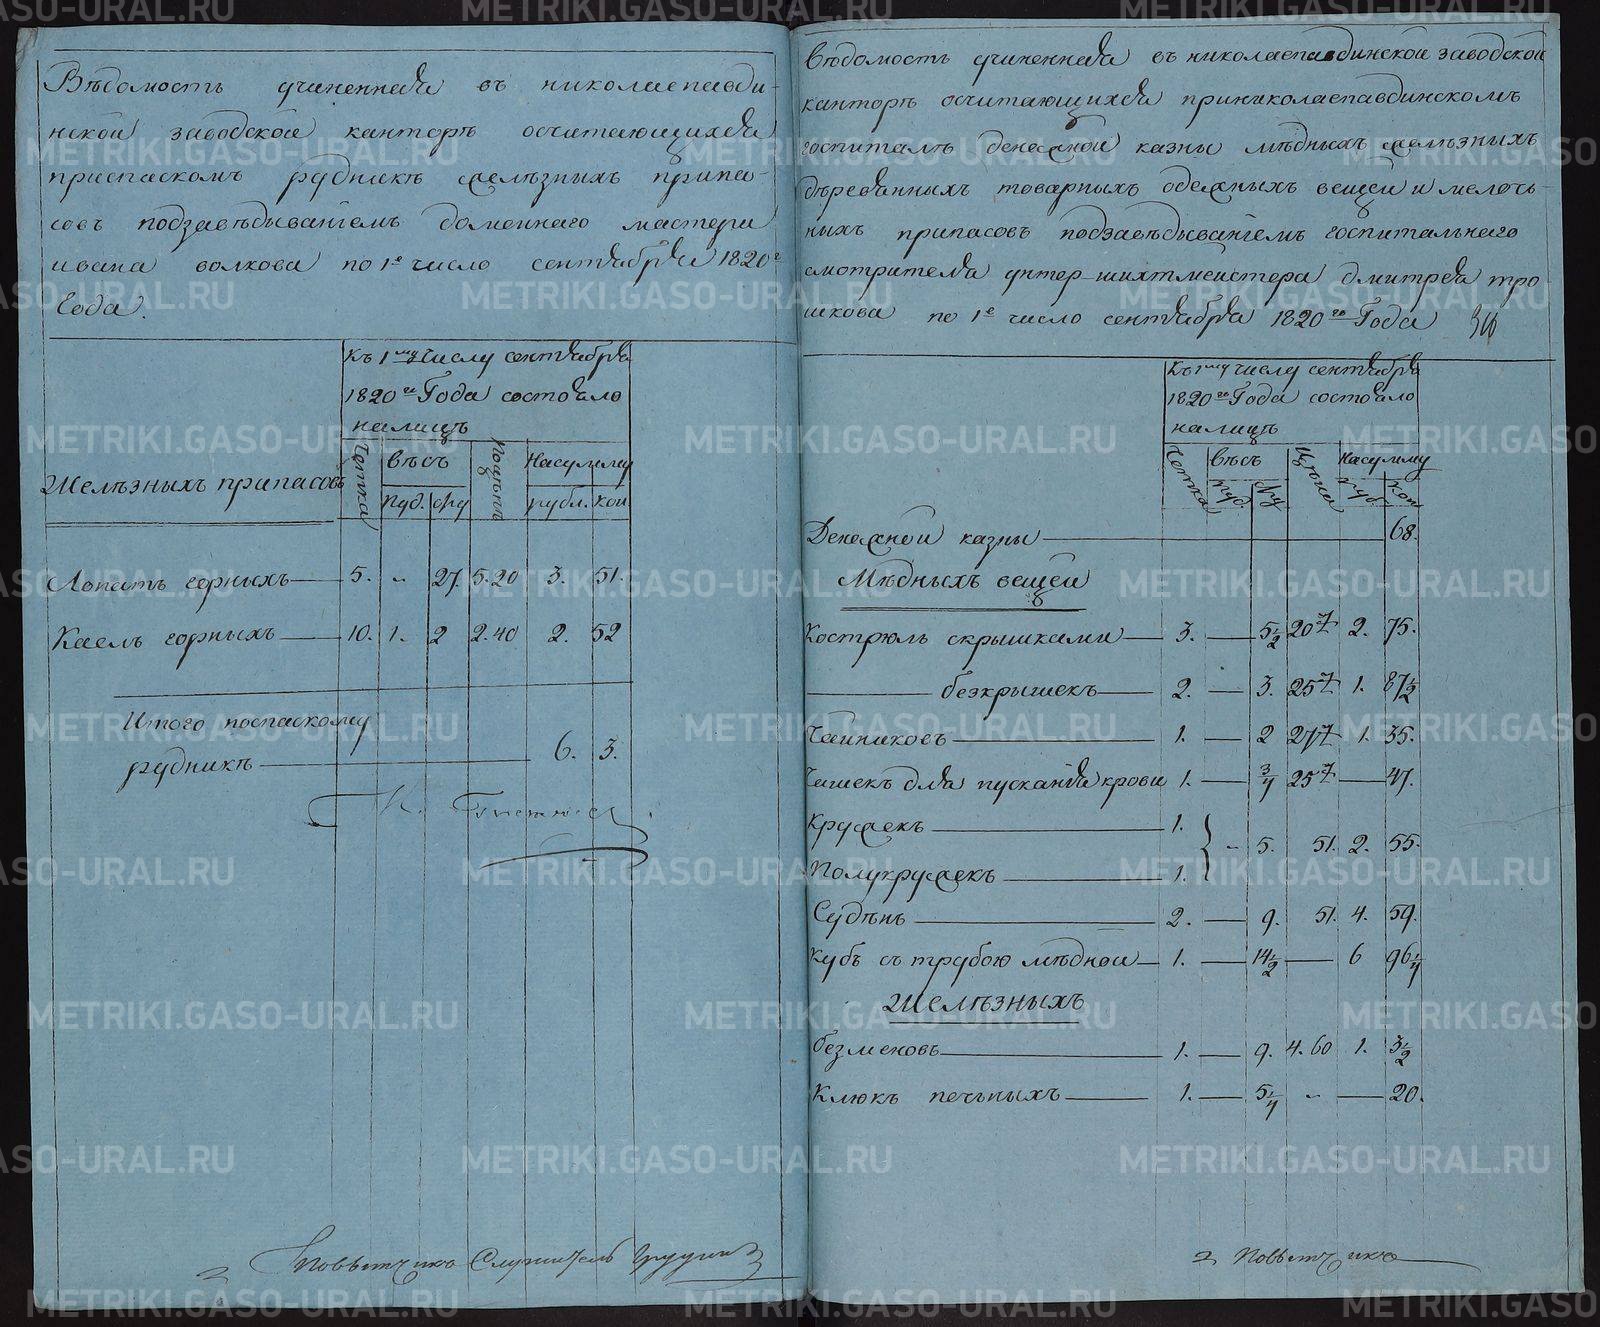 Вѣдомость учиненная въ николаепавди-
нской заводской канторѣ осчитающихся
приспаскомъ рудникѣ желѣзныхъ припа-
совъ подзавѣдываніемъ доменнаго мастера
ивана волкова по 1е число сентября 1820го
Года.
Къ 1му числу сентября
1820го Года состояло
налицѣ
Желѣзныхъ припасовъ
Щетка вѣсъ Поценѣ Насумму
пуд. фу рубл. коп
Лопатъ горныхъ 5. „ 27. 5.20 3. 51.
Каелъ горныхъ 10. 1. 2 2.40 2. 52
Итого поспаскому
рудникѣ 6. 3.
Повытчикъ Служитель
Вѣдомость учиненная въ николаепавдинской заводской
канторѣ осчитающихся приниколаепавдинскомъ
госпиталѣ денежной казны мѣдныхъ желѣзныхъ
деревянныхъ товарныхъ одежныхъ вещей и мелоч-
ныхъ припасовъ подзавѣдываніемъ госпитальнаго
смотрителя унтер-шихтмейстера дмитрея тро
шкова по 1е число сентября 1820го Года
Къ 1му числу сентября
1820го Года состояло
налицѣ
Щетка вѣсъ Цена Насумму
пуд. фу руб. коп
Денежной казны 68.
Мѣдныхъ вещей
Кострюль скрышками 3. 5½ 20 7 2. 75.
безкрышекъ 2. 3. 25 7 1. 87½
Чайниковъ 1. 2 27 7 1. 35.
Чашекъ для пусканія крови 1. ¾ 25 7 47.
Кружекъ 1.
5. 51. 2. 55.
Полукружекъ 1.
Суденъ 2. 9. 51. 4. 59.
Кубъ съ трубою мѣдной 1. 14½ 6 96¼
Желѣзныхъ
безменовъ 1. 9. 4.60 1. 3½
Клюкъ печныхъ 1. 5¼ „ 20.
Повытчикъ
METRIKI.GASO-URAL.RU